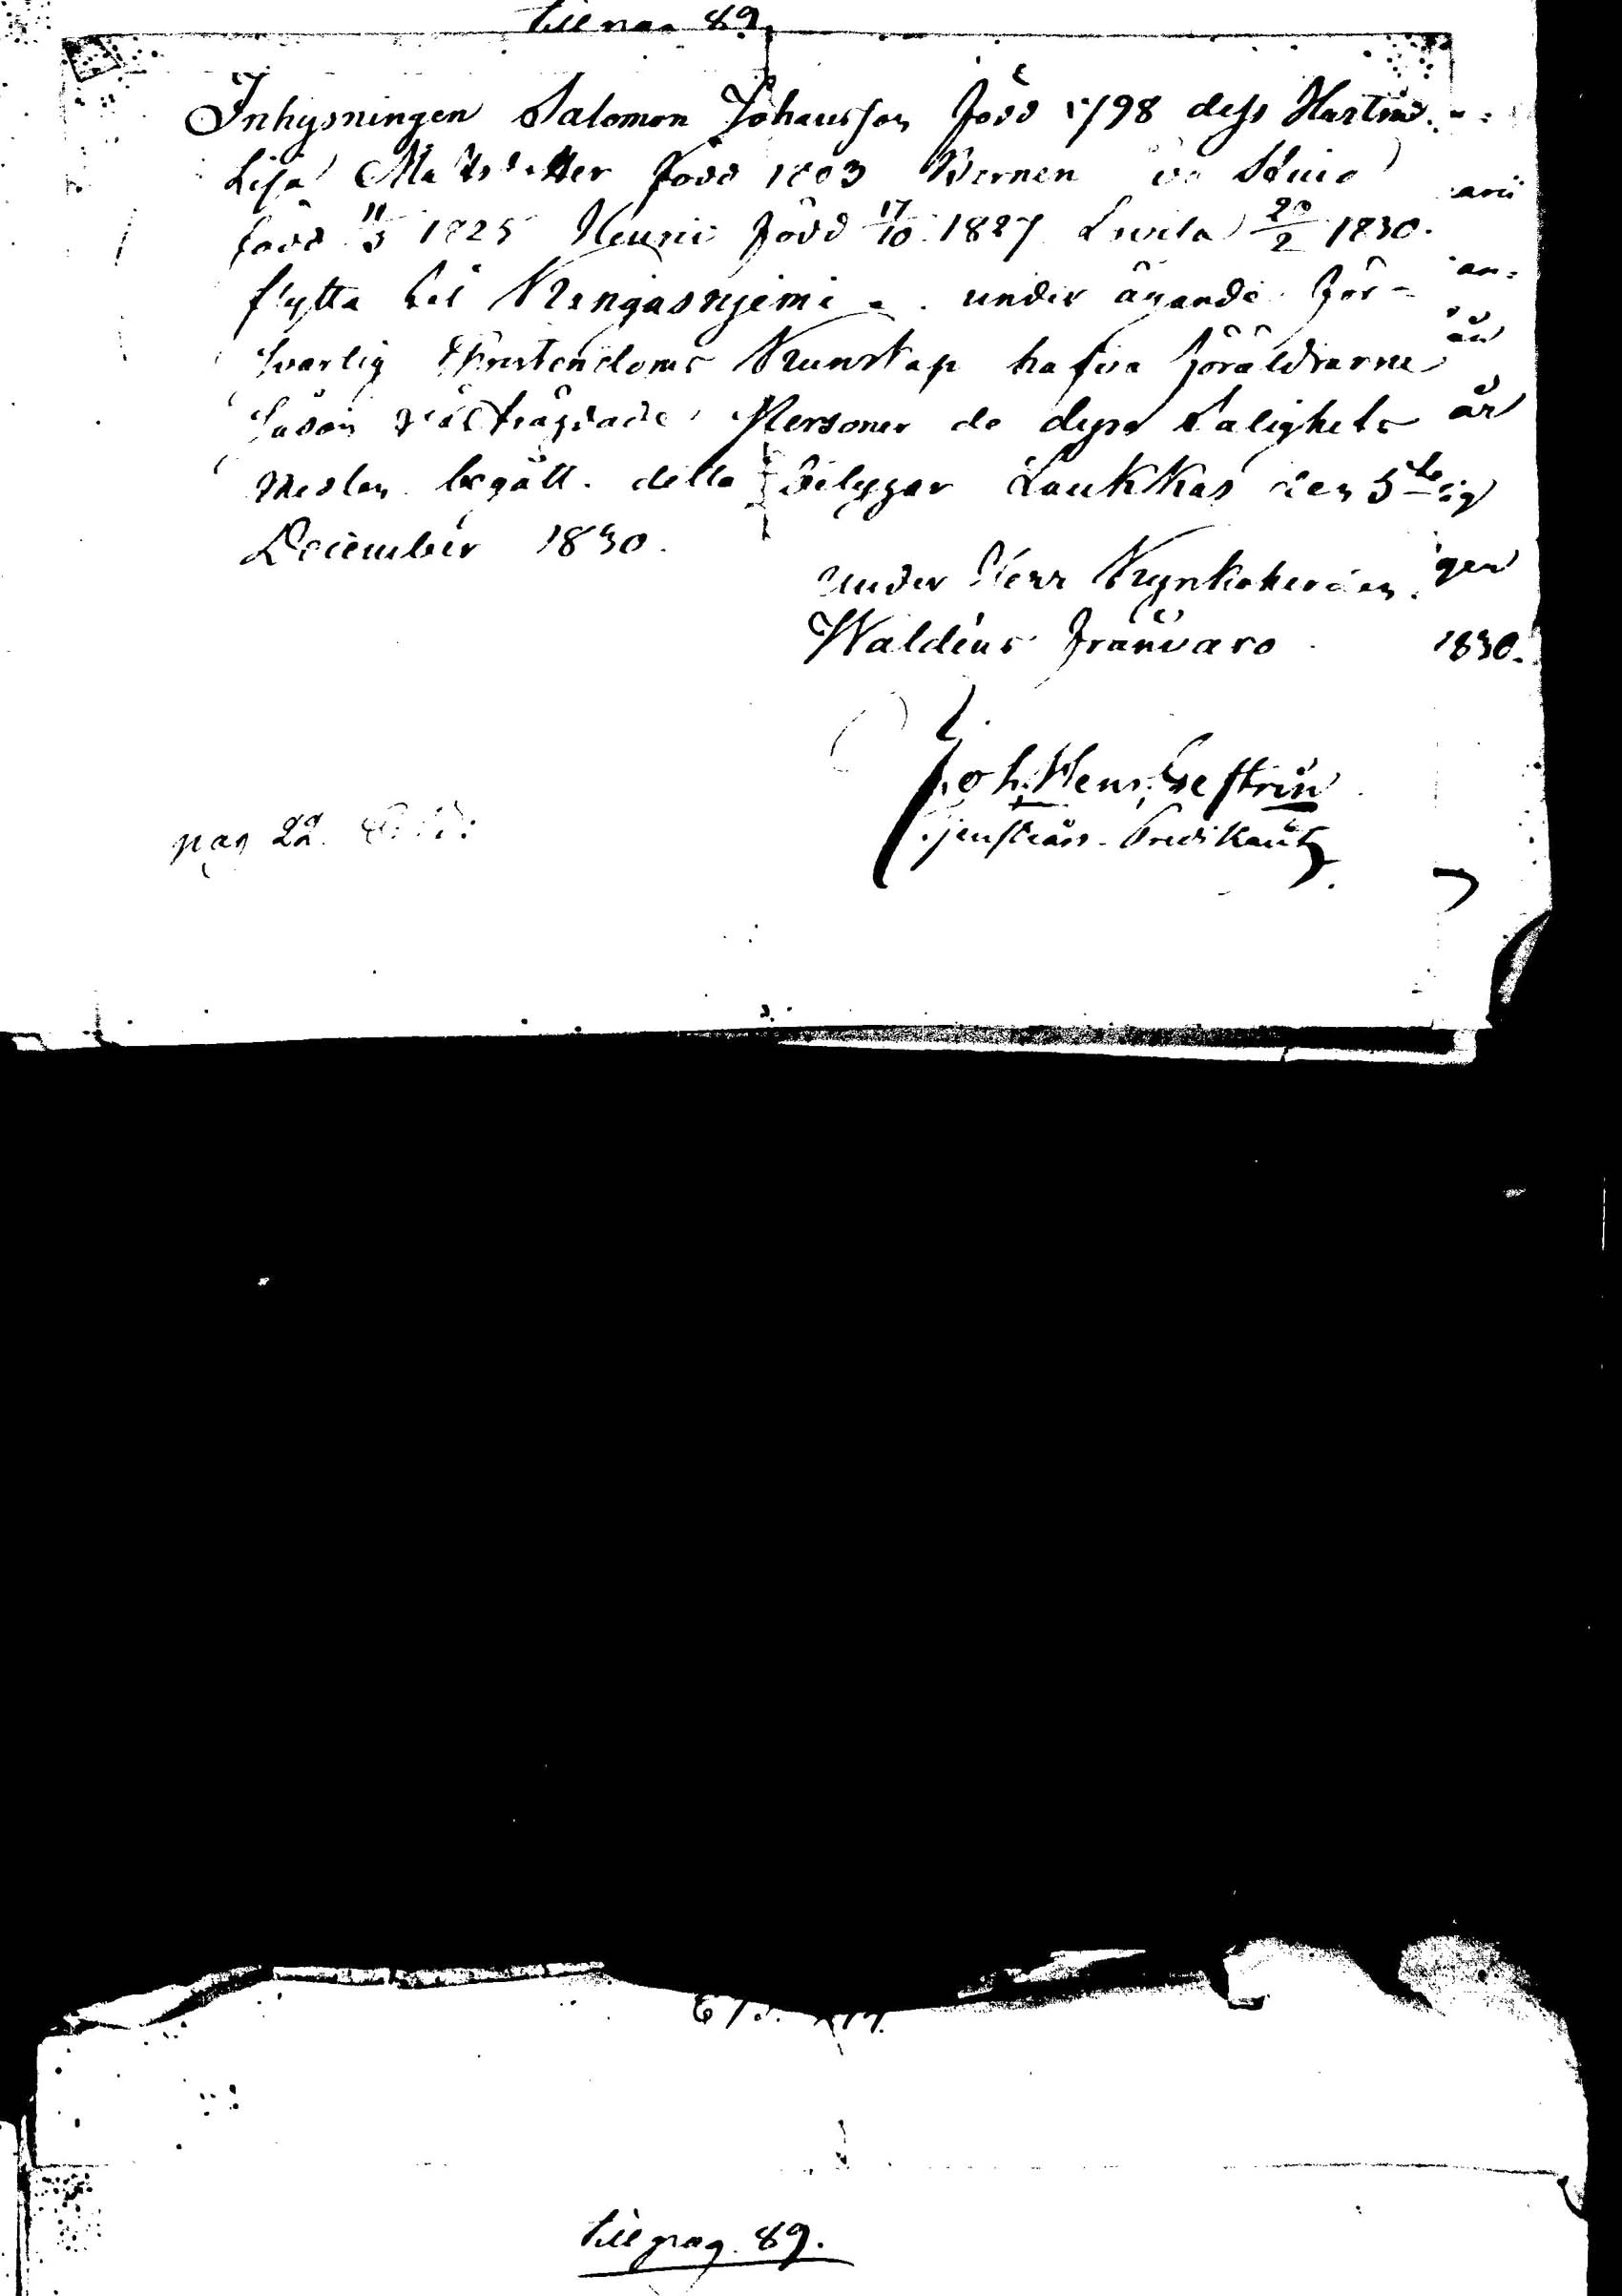 till pag 89.
Inhysningen Salomon Johansson född 1798 dess Hustru
Lisa Matsdotter född 1803 Barnen
född 11/3 1825 Henric född 17/10 1827 Lovisa 20/2 1830.
flytta till Kangasnjemi under ägande för-
svarlig Christendoms Kunskap hafva föräldrarne
såsom välfrägdade Personer de dyra Salighets
Medlen begått. detta betygar Laukkas den 5te
December 1830.
under Herr Kyrkoherden
Waldéns frånvaro
Joh. Henr. Geftrin
Predikant
pag 22.
arii
an=
är
gen
1830.
till pag. 89.